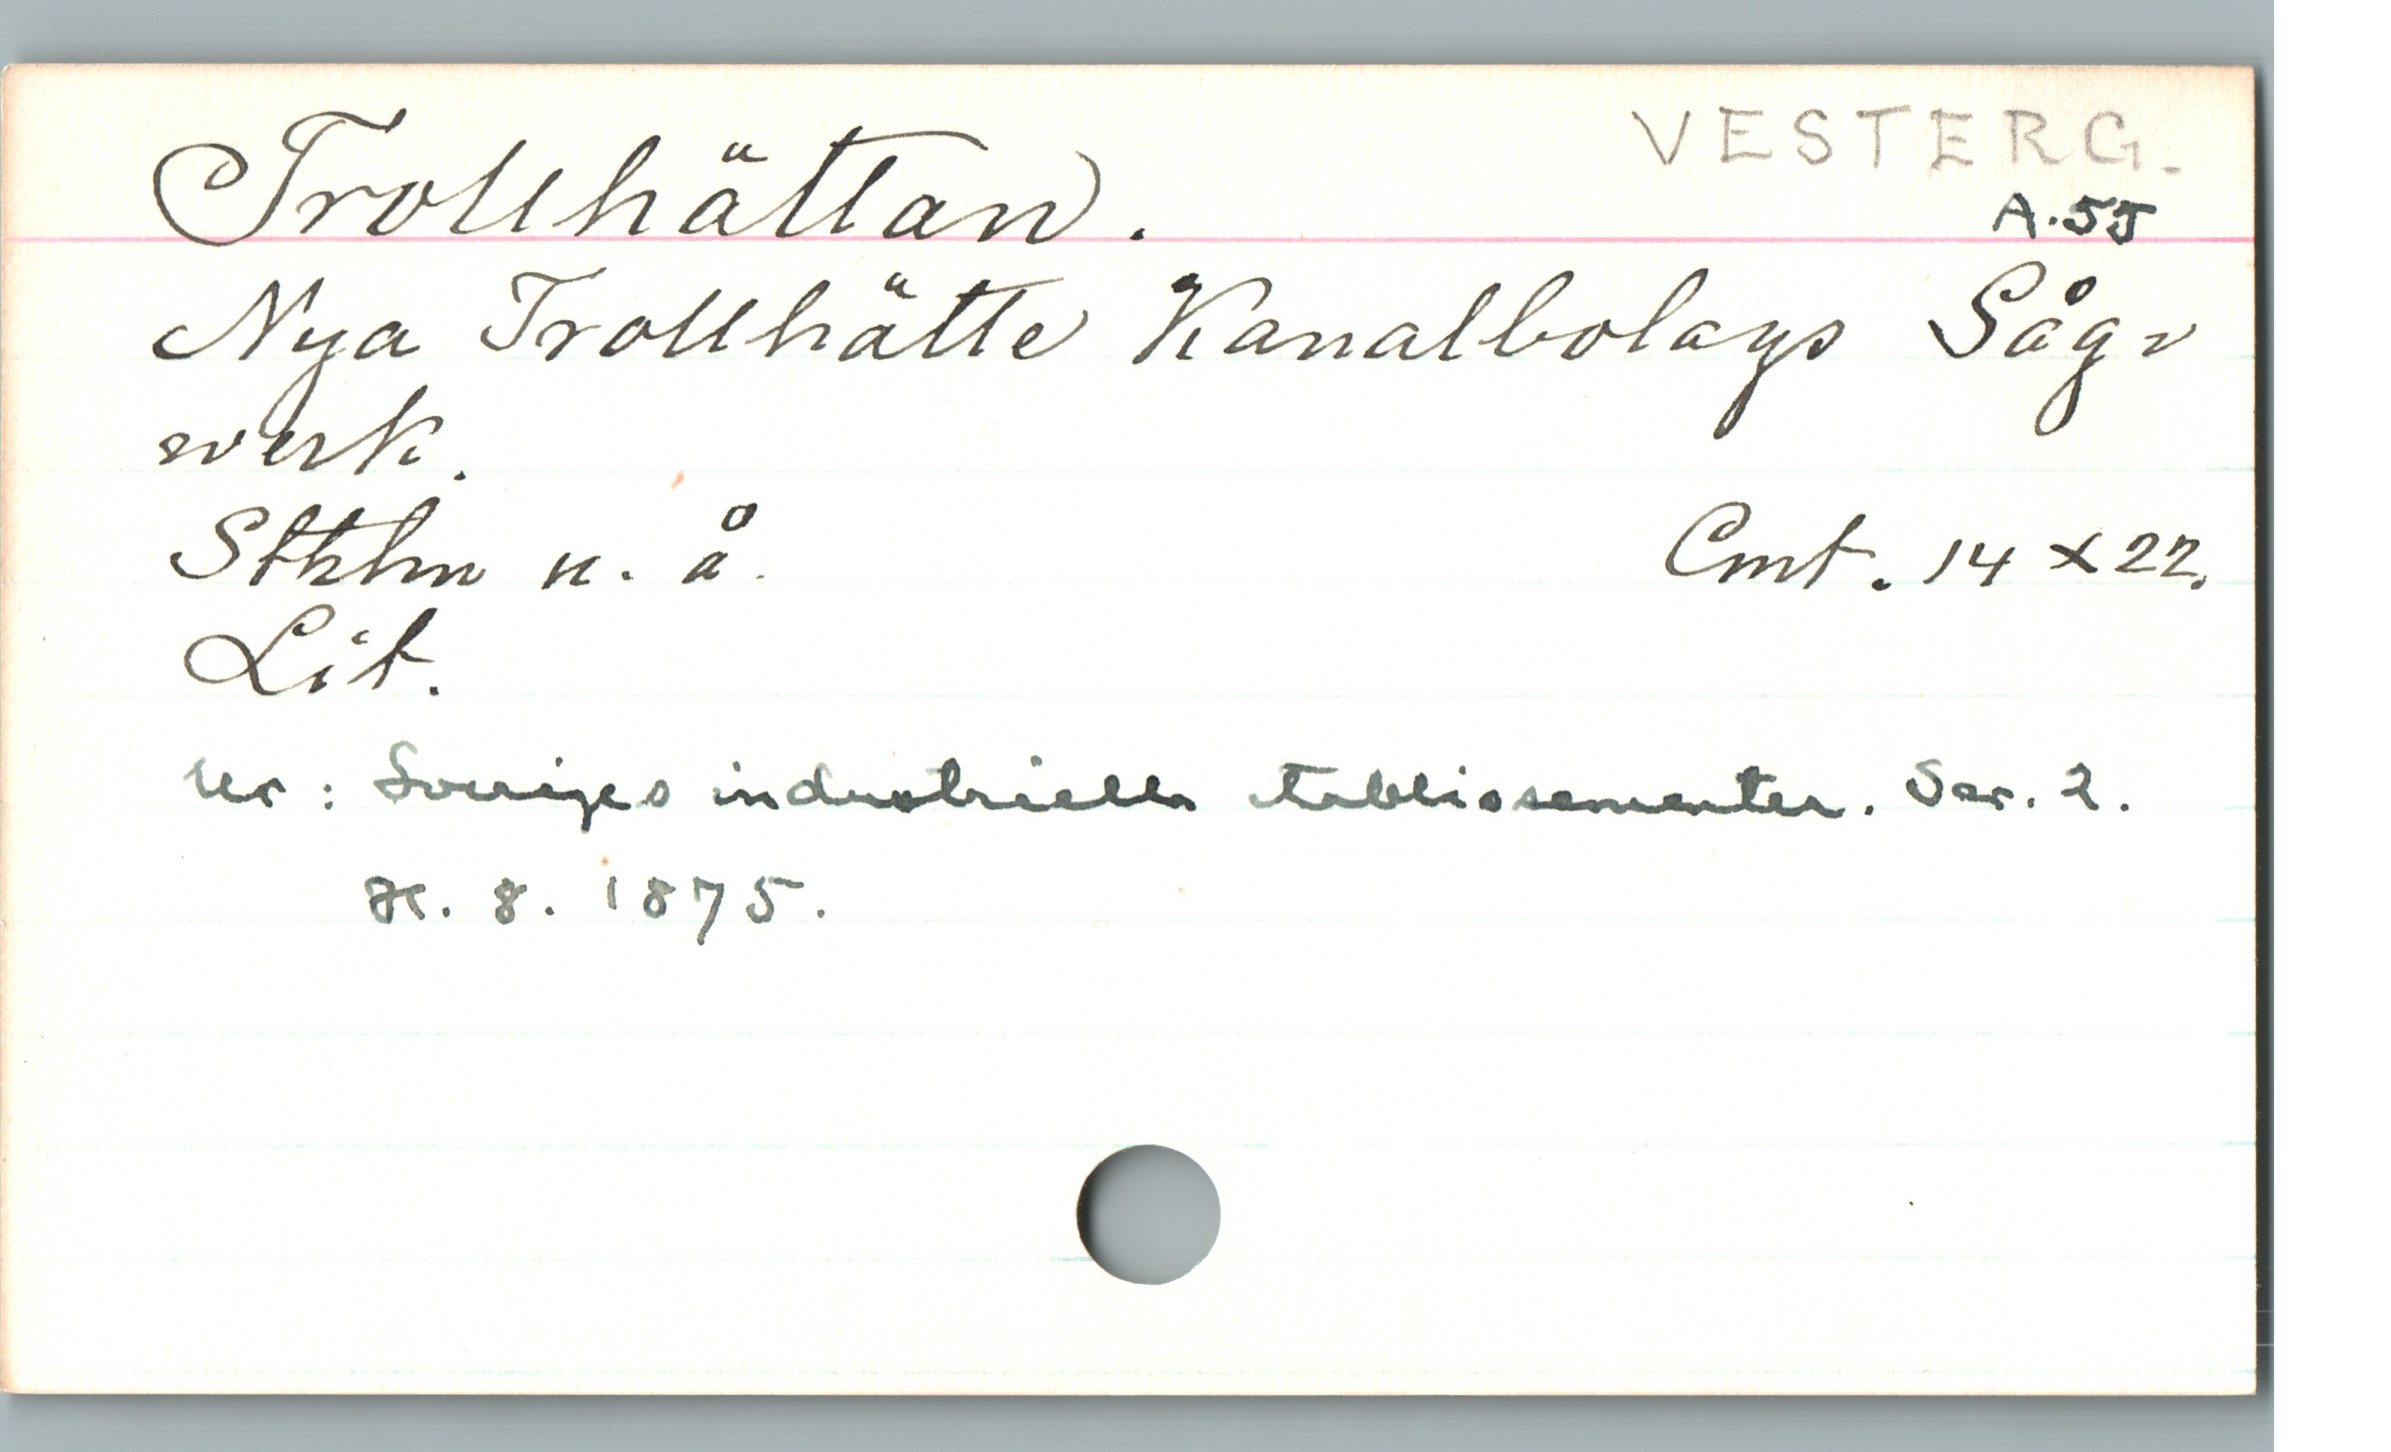 VESTERG.
Trollhättan.
A.55
Nya Trollhätte Kanalbolags Såg-
werk.
Sthlm u. å.
Cmt. 14 x 22.
Lit.
Ur: Sveriges industriella etablissementer. Ser. 2.
H. 8. 1875.